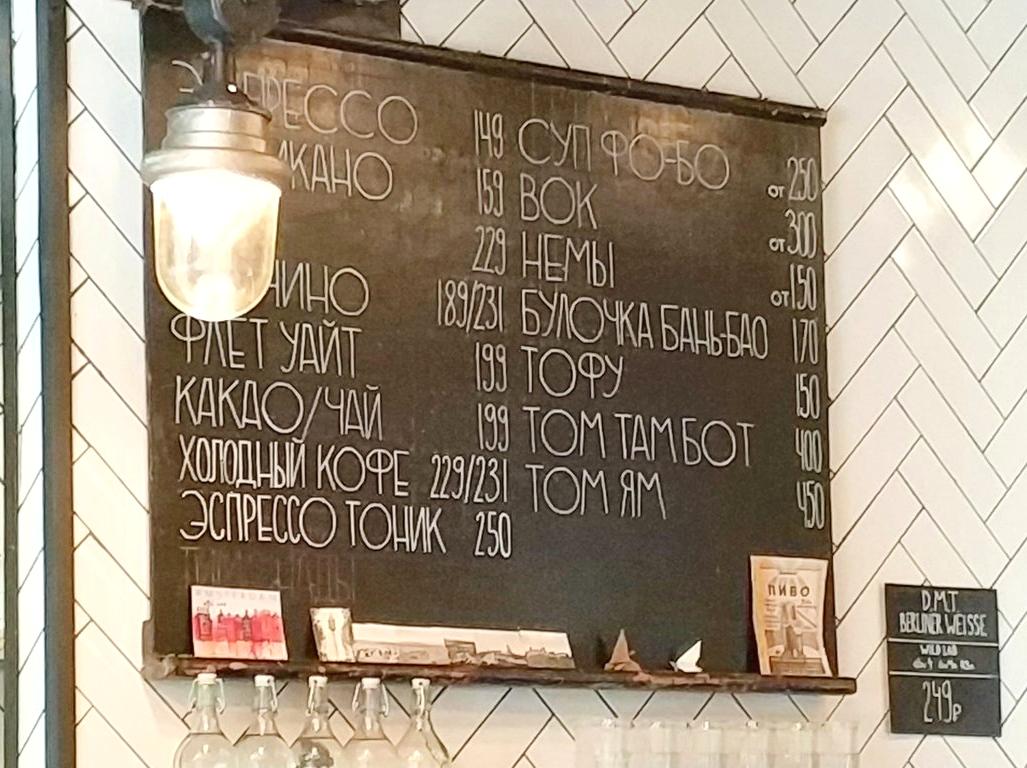 149
159
229
189/231
ФЛЕТ УАЙТ 199
КАКАО/ЧАЙ 199
ХОЛОДНЫЙ КОФЕ 229/231
ЭСПРЕССО ТОНИК 250
СУП ФО-БО от 250
ВОК от 300
НЕМЫ от 150
БУЛОЧКА БАНЬ-БАО 170
ТОФУ 150
ТОМ ТАМ БОТ 400
ТОМ ЯМ 450
ПИВО
D.M.T.
BERLINER WEISSE
WILD LAB
249₽